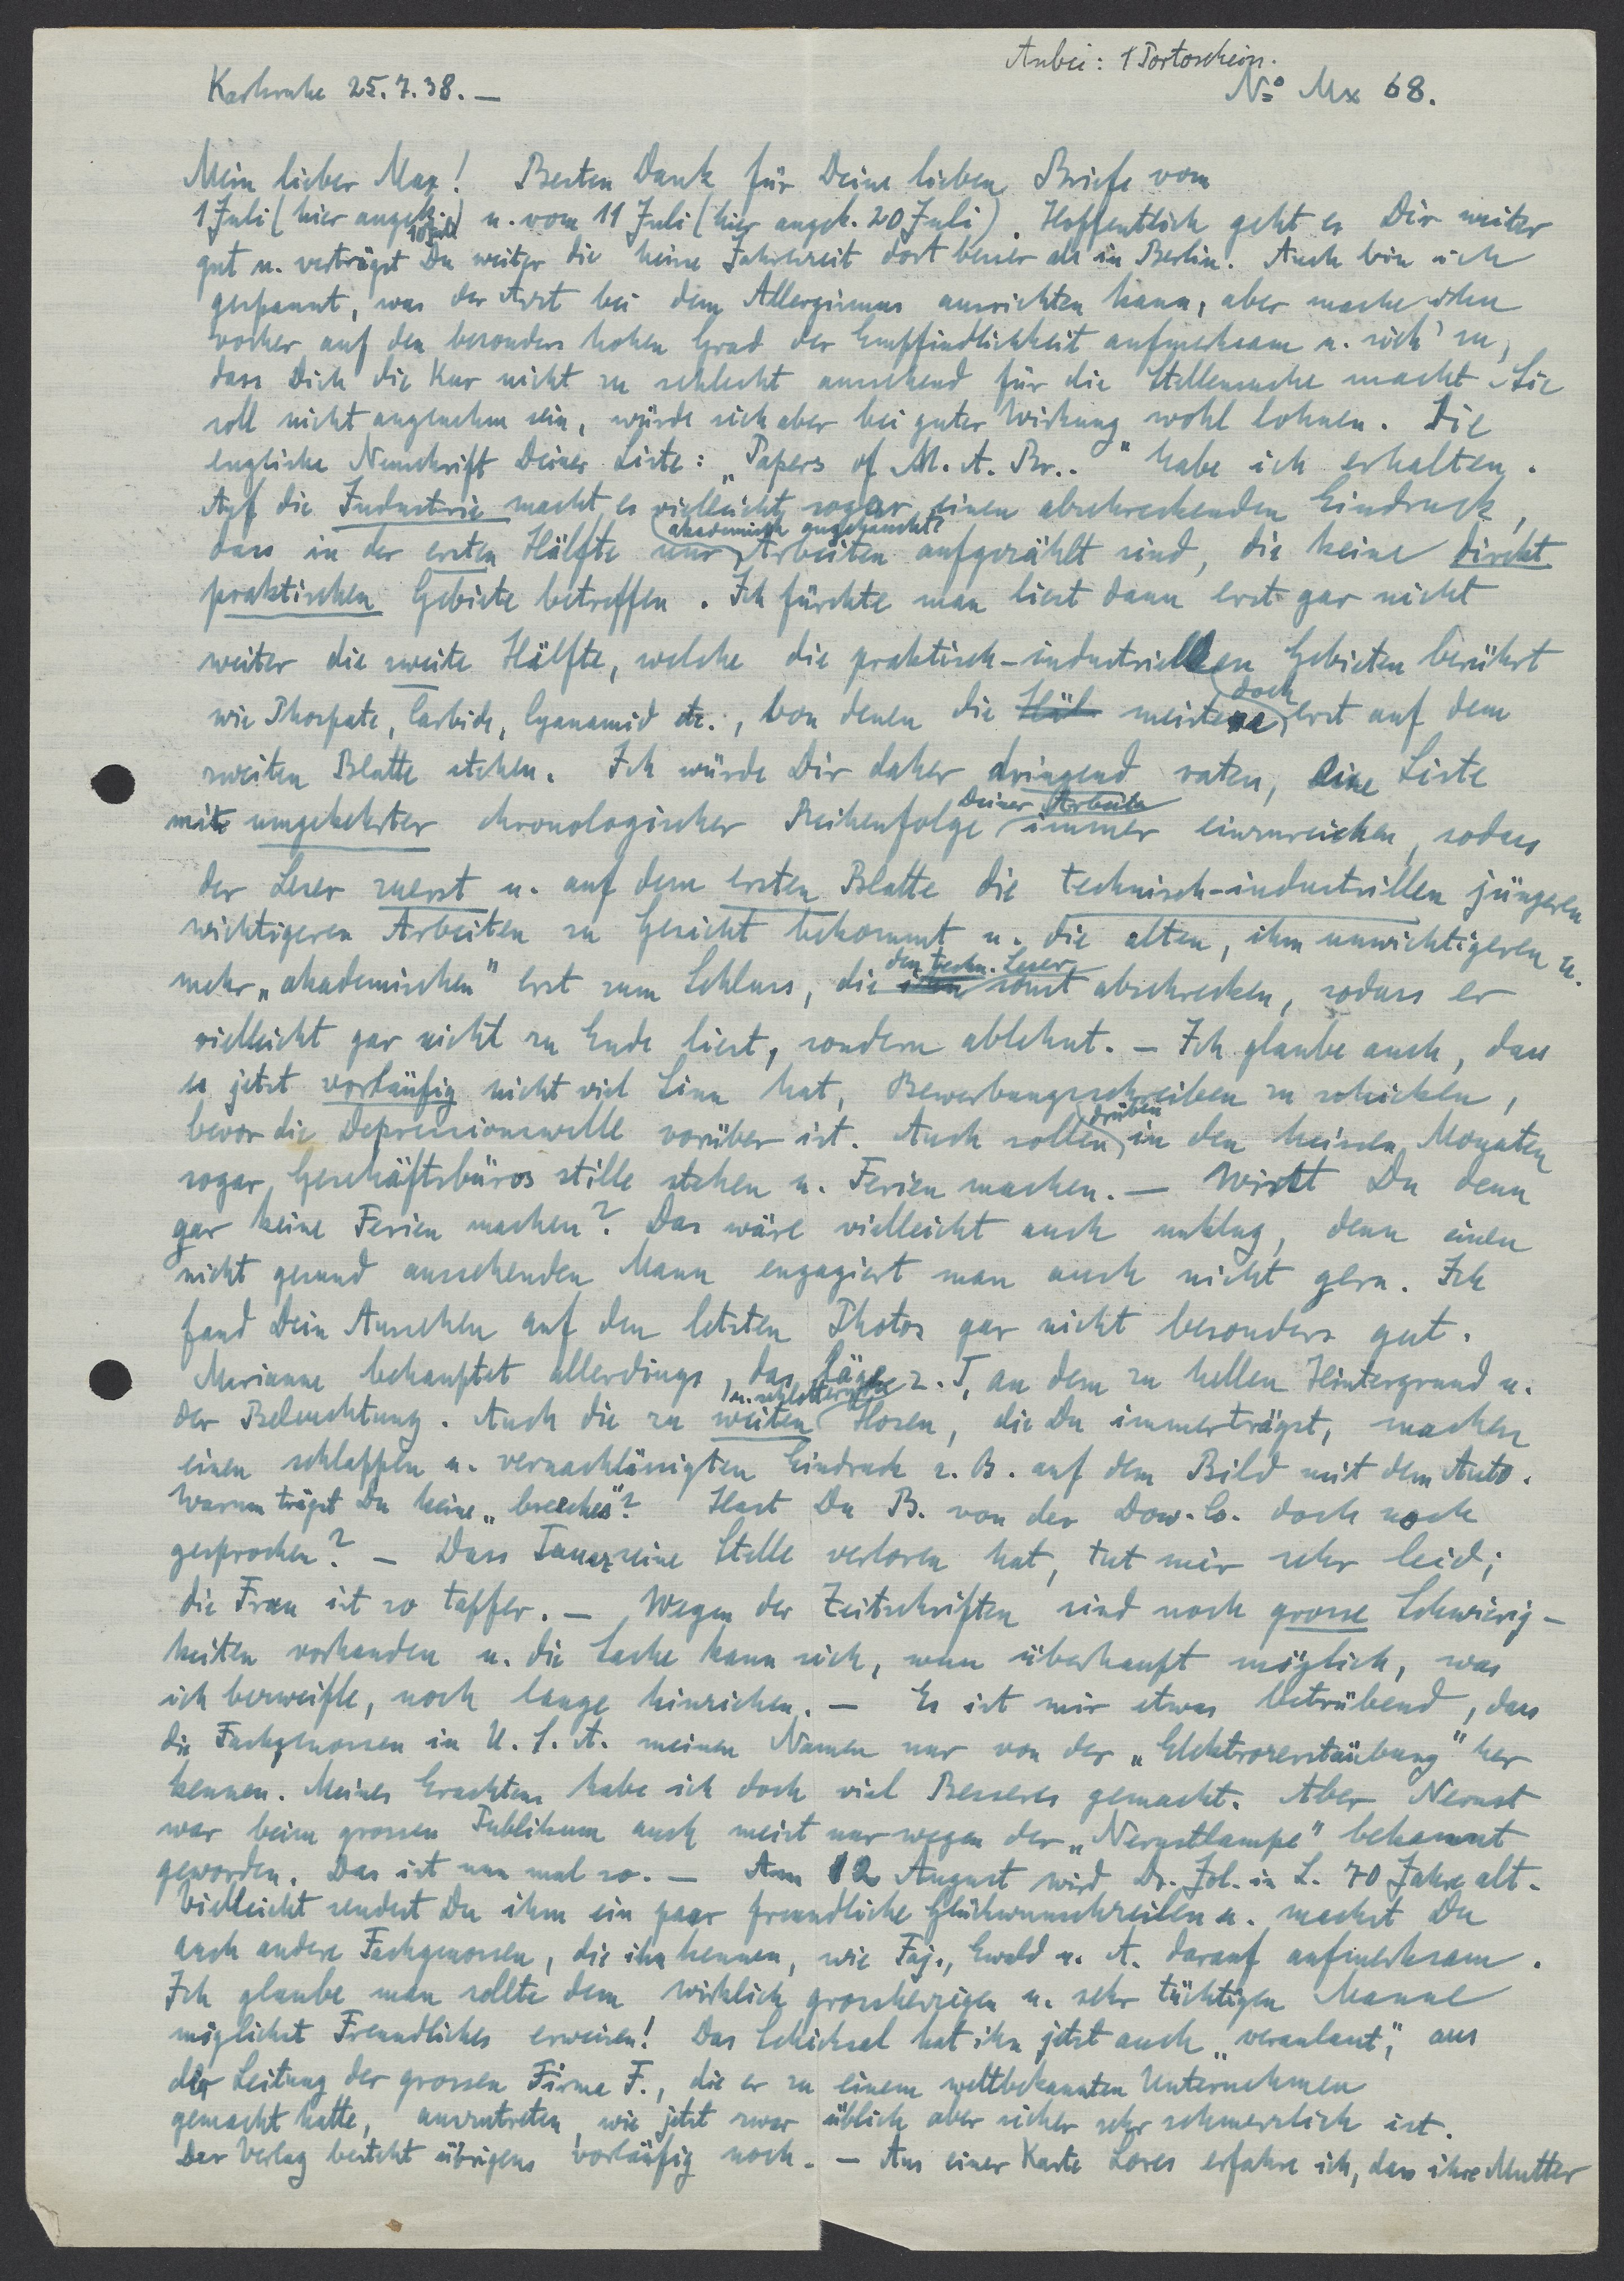 Anbei: 1 Portoschein.
Karlsruhe 25.7.38. —
No Mx 68.
Mein lieber Max! Besten Dank für Deine lieben Briefe vom
1 Juli (hier angek. 10 Juli) u. vom 11 Juli (hier angek. 20 Juli). Hoffentlich geht es Dir weiter
gut u. verträgst Du weiter die heisse Jahreszeit dort besser als in Berlin. Auch bin ich
gespannt, was der Arzt bei dem Allergismus ausrichten kann, aber mache ihn
vorher auf den besonders hohen Grad der Empfindlichkeit aufmerksam u. sieh' zu,
dass Dich die Kur nicht zu schlecht aussehend für die Stellensuche macht. Sie
soll nicht angenehm sein, würde sich aber bei guter Wirkung wohl lohnen. Die
englische Neuschrift Deiner Liste: „Papers of M. A. Br.." habe ich erhalten.
Auf die Industrie macht es vielleicht sogar einen abschreckenden Eindruck,
dass in der ersten Hälfte nur (akademisch angehauchte) Arbeiten aufgezählt sind, die keine direkt
praktischen Gebiete betreffen. Ich fürchte man liest dann erst gar nicht
weiter die zweite Hälfte, welche die praktisch-industriellen Gebieten berührt
wie Phospate, Carbide, Cyanamid etc., von denen die Häl meisten doch erst auf dem
zweiten Blatte stehen. Ich würde Dir daher dringend raten, eine Liste
mit umgekehrter chronologischer Reihenfolge Deiner Arbeiten immer einzureichen, sodass
der Leser zuerst u. auf dem ersten Blatte die technisch-industriellen jüngeren
wichtigeren Arbeiten zu Gesicht bekommt u. die alten, ihm unwichtigeren u.
mehr „akademischen" erst zum Schluss, die den techn. Leser sonst abschrecken, sodass er
vielleicht gar nicht zu Ende liest, sondern ablehnt. — Ich glaube auch, dass
es jetzt vorläufig nicht viel Sinn hat, Bewerbungsschreiben zu schicken,
bevor die Depressionswelle vorüber ist. Auch sollen drüben in den heissen Monaten
sogar Geschäftsbüros stille stehen u. Ferien machen. — Wirst Du denn
gar keine Ferien machen? Das wäre vielleicht auch unklug, denn einen
nicht gesund aussehenden Mann engagiert man auch nicht gern. Ich
fand Dein Aussehen auf den letzten Photos gar nicht besonders gut.
Marianne behauptet allerdings, das läge z. T. an dem zu hellen Hintergrund u.
der Beleuchtung. Auch die zu weiten u. schlotternden Hosen, die Du immer trägst, machen
einen schlappen u. vernachlässigten Eindruck z. B. auf dem Bild mit dem Auto.
Warum trägst Du keine „breeches"? Hast Du B. von der Dow. Co. doch noch
gesprochen? — Dass Tanaz seine Stelle verloren hat, tut mir sehr leid;
die Frau ist so tapfer. — Wegen der Zeitschriften sind noch grosse Schwierig-
keiten vorhanden u. die Sache kann sich, wenn überhaupt möglich, was
ich bezweifle, noch lange hinziehen. — Es ist mir etwas betrübend, dass
die Fachgenossen in U. S. A. meinen Namen nur von der „Elektrozerstäubung" her
kennen. Meines Erachtens habe ich doch viel Besseres gemacht. Aber Nernst
war beim grossen Publikum auch meist nur wegen der „Nernstlampe" bekannt
geworden. Das ist nun mal so. — Am 12 August wird Dr. Jol. in L. 70 Jahre alt.
Vielleicht sendest Du ihm ein paar freundliche Glückwunschzeilen u. machst Du
auch andere Fachgenossen, die ihn kennen, wie Faj., Ewald u. A. darauf aufmerksam.
Ich glaube man sollte dem wirklich grossherzigen u. sehr tüchtigen Manne
möglichst Freundliches erweisen! Das Schicksal hat ihn jetzt auch „veranlasst", aus
der Leitung der grossen Firma F., die er zu einem weltbekannten Unternehmen
gemacht hatte, auszutreten, wie jetzt zwar üblich aber sicher sehr schmerzlich ist.
Der Verlag besteht übrigens vorläufig noch. — Aus einer Karte Lores erfahre ich, dass ihre Mutter